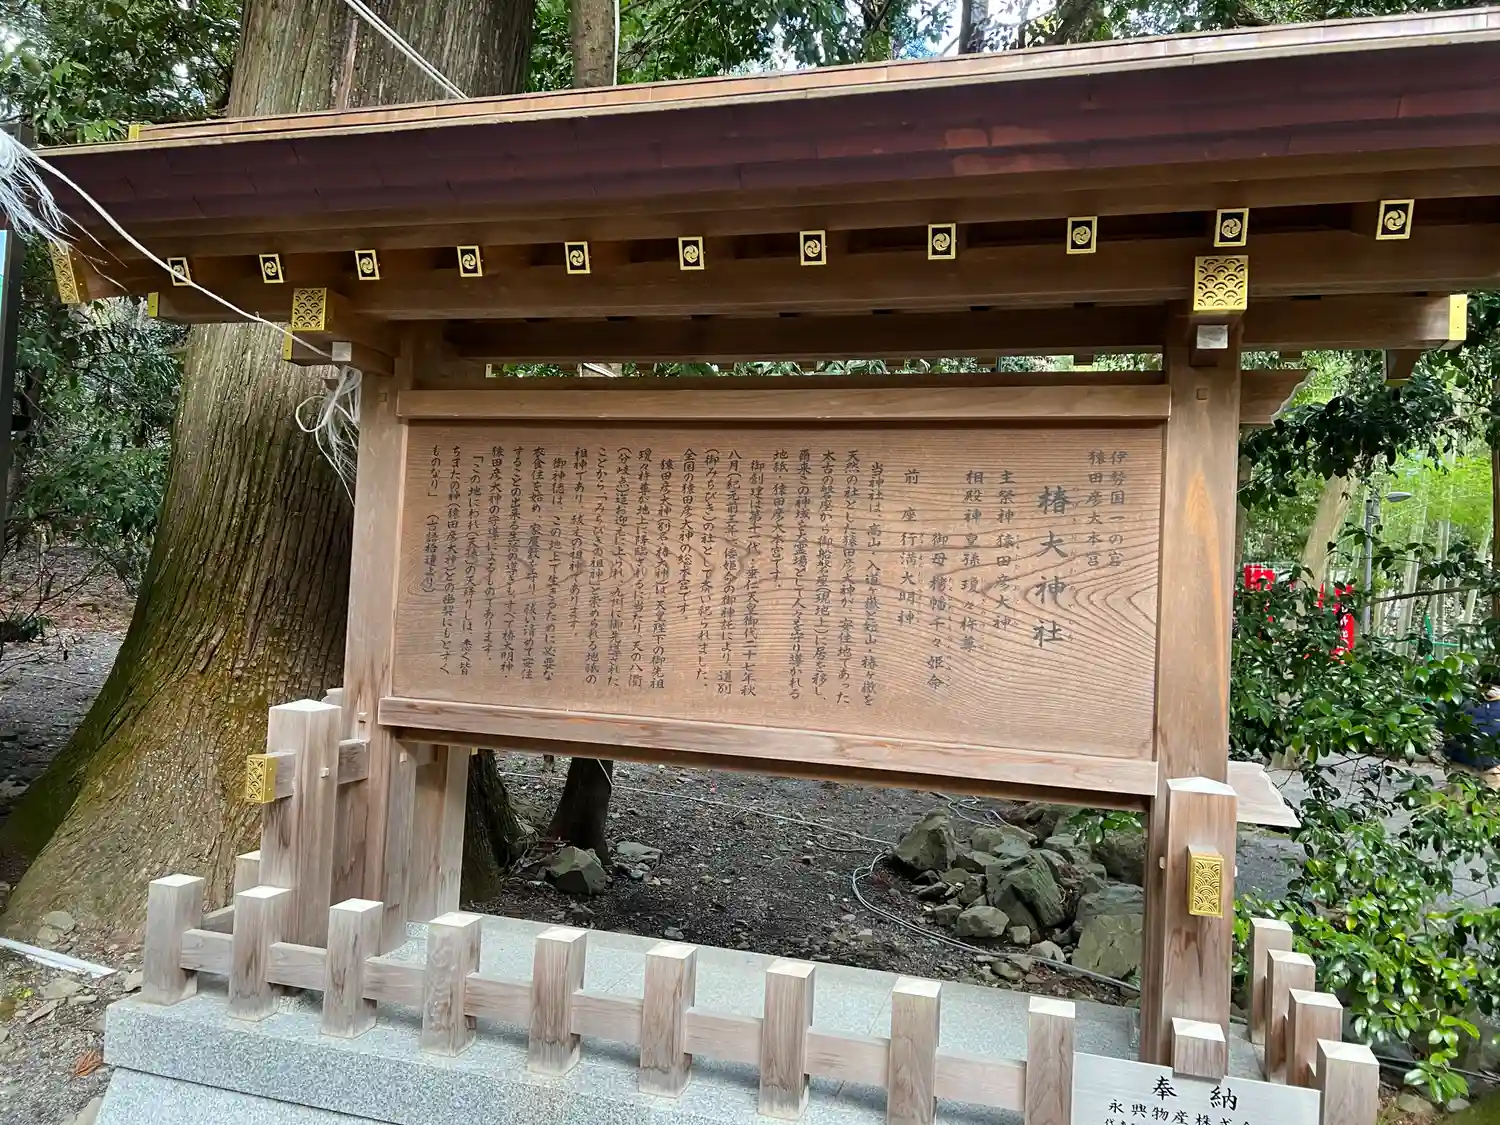 伊勢国一の宮
猿田彦大本宮
椿大神社
主祭神 猿田彦大神
相殿神 皇孫瓊々杵尊
御母 栲幡千々姫命
前座 行満大明神
当神社は、高山 入道ヶ嶽・短山・椿ヶ嶽を
天然の社とし、猿田彦大神が、安住地であった
太古の磐座から御船磐座(現地上)に居を移し、
爾来この神域を大霊場として人々を守り導かれる
地祇 猿田彦大本宮です。
御創建は第十一代・垂仁天皇御代二十七年秋
八月(紀元前三年)倭姫命の御神託により、道別
(御みちびき)の社として斎き祀られました。
全国の猿田彦大神の総本宮です
猿田彦大神(別名 椿大神)は、天皇陛下の御先祖
瓊々杵尊が地上に降臨されるに当たり、天の八衢
(分岐点)に迄お迎えに上られ、九州に御先導された
ことから「みちびきの祖神」と崇められる地祇の
祖神であり、祓えの祖神であります。
御神徳は、この地上で生きるために必要な
衣食住を始め、家屋敷を守り、祓い清めて安住
することの出来る生活の導きも、すべて椿大明神・
猿田彦大神の守導によるものであります。
「この地にわれ(天椿)の天降りしは、悉く皆
ちまたの神(猿田彦大神)との幽契にもとずく
ものなり」 (古語拾遺より)
奉納
永興物産株式会